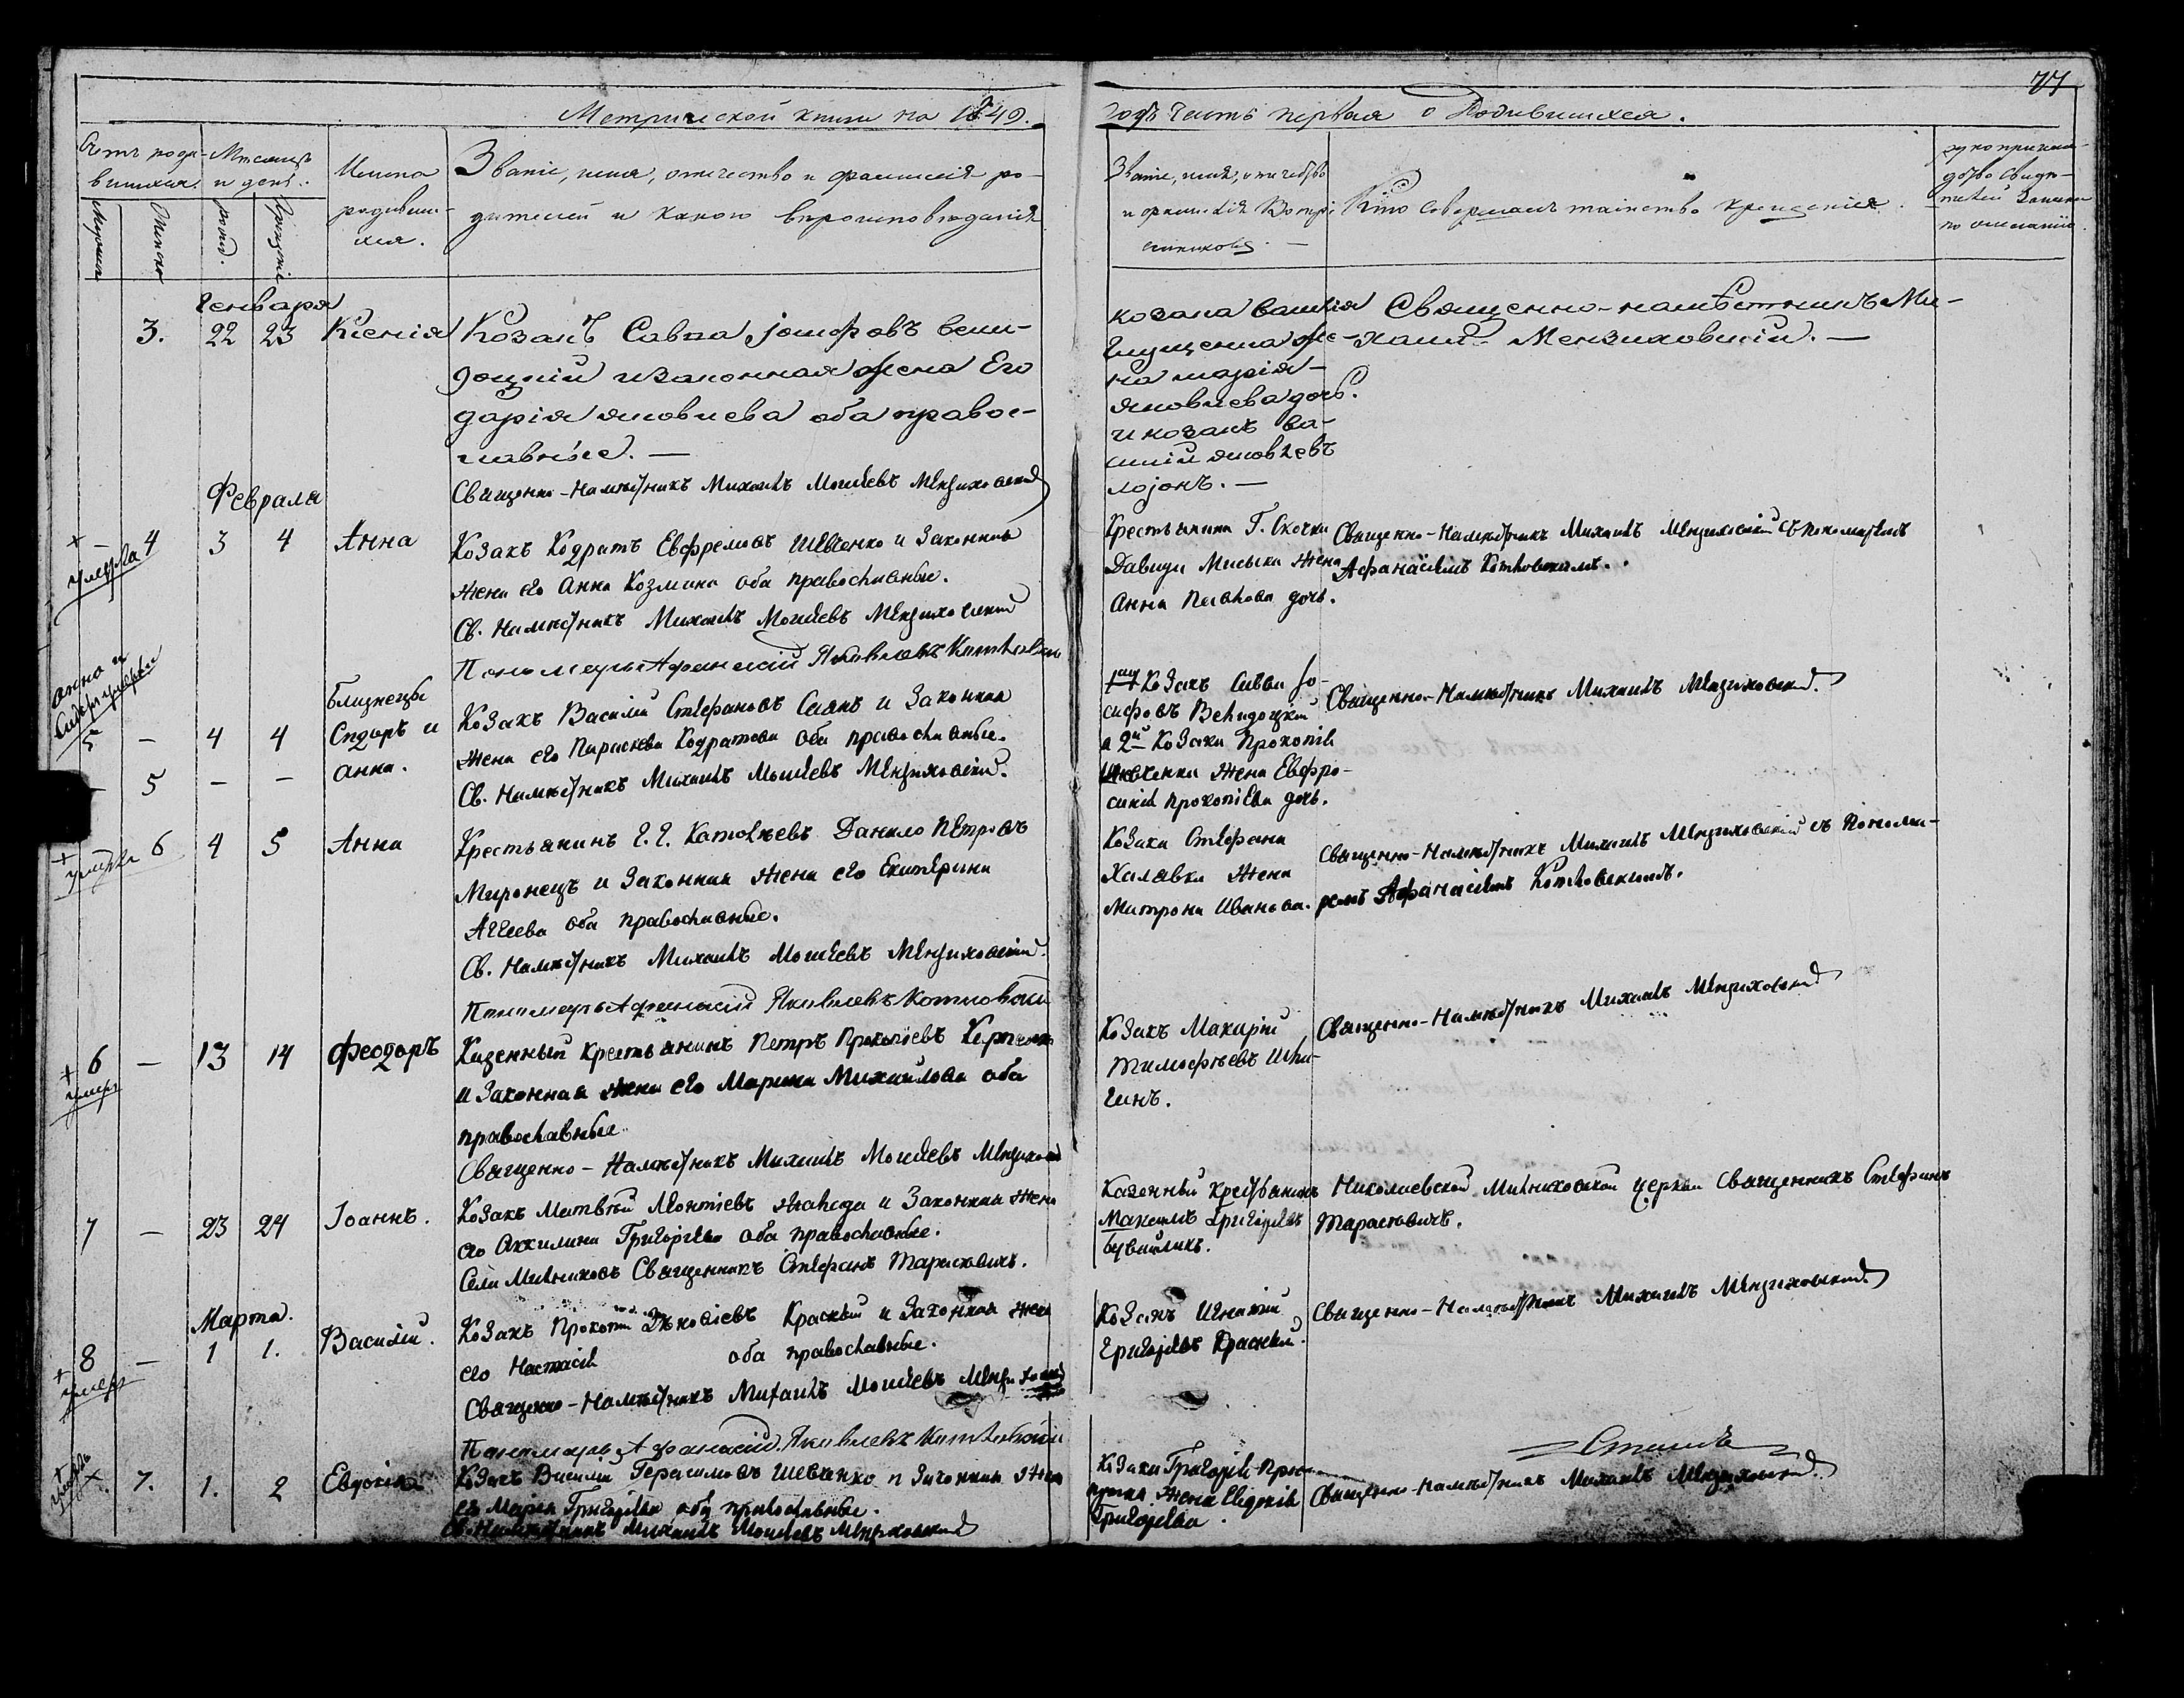 77
Метрической книги на 1849. годъ Часть первая о Родившихся.
Счетъ роди-
вшихся.
Мужеска
Женска
Мѣсяцъ
и день.
рожд.
Крещенiе
Имена
родивши-
хся.
Званiе, имя, отчество и фамилiя ро-
дителей и какого вѣроисповѣданiя
Званiе, имя, отчество
и фамилiя Воспрi-
емниковъ.
Кто совершалъ таинство крещенiя.
рукоприкла-
дство Свидѣ-
телей записи
по желанiю.
Генваря
3. 22 23 Ксенiя
Козакъ Савва Iосифовъ вели-
доцкiй и законная жена Его
дарiя яковлева оба правос-
лавные. —
Священно-Намѣстникъ Михаилъ Моисѣевъ Мензиховскiй
козака василiя
Глущенка же-
на марiя
яковлева дочь.
и козакъ ва-
силiй яковлевъ
Священно-намѣстникъ Ми-
хаилъ Мензиховскiй. —
Февраля
+ умерла
— 4 3 4 Анна
Козакъ Кодратъ Евфремовъ Шевченко и Законная
жена его Анна Козмина оба православные.
Св. Намѣстникъ Михаилъ Моисѣевъ Мензиховскiй
Пономарь Афанасiй Яковлевъ Котлевскiй
Крестьянина Г. Скочки
Давида Мисыка жена
Анна Павлова дочь.
Священно-Намѣстникъ Михаилъ Мензиховскiй съ пономаремъ
Афанасiемъ Котлевскимъ.
анна и
Сидоръ умерли
5 — 4 4
— 5 — —
близнецы
Сидоръ и
анна.
Козакъ Василiй Стефановъ Саякъ и Законная
жена его Параскева Кодратова оба православные.
Св. Намѣстникъ Михаилъ Моисѣевъ Мензиховскiй.
Козакъ Савва Iо-
сифовъ Велидоцкiй
а 2й Козака Прокопiя
Шевченка жена Евфро-
синiя прокопiева дочь.
Священно-Намѣстникъ Михаилъ Мензиховскiй.
+ умерла
6 4 5 Анна
Крестьянинъ Г.Г. Данило Петровъ
Миронецъ и Законная жена его Екатерина
Агѣева оба православные.
Св. Намѣстникъ Михаилъ Моисѣевъ Мензиховскiй.
Пономарь Афанасiй Яковлевъ Котлевскiй
Козака Стефана
Халавки жена
Матрона Иванова.
Священно-Намѣстникъ Михаилъ Мензиховскiй съ Понома-
ремъ Афанасiемъ Котлевскимъ.
+ умеръ
6 — 13 14 Феодоръ
Казенный Крестьянинъ Петръ Прокопiевъ
и Законная жена его Марина Михайлова оба
православные
Священно-Намѣстникъ Михаилъ Моисѣевъ Мензиховскiй
Козакъ Макарiй
Тимофѣевъ
Священно-Намѣстникъ Михаилъ Мензиховскiй
7 — 23 24 Iоаннъ.
Козакъ Матвѣй Леонтiевъ и Законная жена
его Акилина Григорiева оба православные.
Села Мѣлниковъ Священникъ Стефанъ Тарасѣвичъ.
Казенный Крестьянинъ
Максимъ Григорiевъ
Николаевской Мѣлниковской церкви Священникъ Стефанъ
Тарасѣвичъ.
Марта.
+ умеръ
8 — 1 1. Василiй.
Козакъ Прокопiй Краскiй и Законная жена
его Настасiя оба православные.
Священно-Намѣстникъ Михаилъ Моисѣевъ Мензиховскiй
Пономарь Афанасiй Яковлевъ Котлевскiй
Козакъ Игнатiй
Григорiевъ Краскiй.
Священно-Намѣстникъ Михаилъ Мензиховскiй.
+ умерла
7. 1. 2 Евдокiя
Козакъ Василiй Герасимовъ Шевченко и Законная жена
его Марiя Григорiева оба православные.
Св. Намѣстникъ Михаилъ Моисѣевъ Мензиховскiй
Козака Григорiя
жена Евдокiя
Григорiева.
Священно-Намѣстникъ Михаилъ Мензиховскiй.